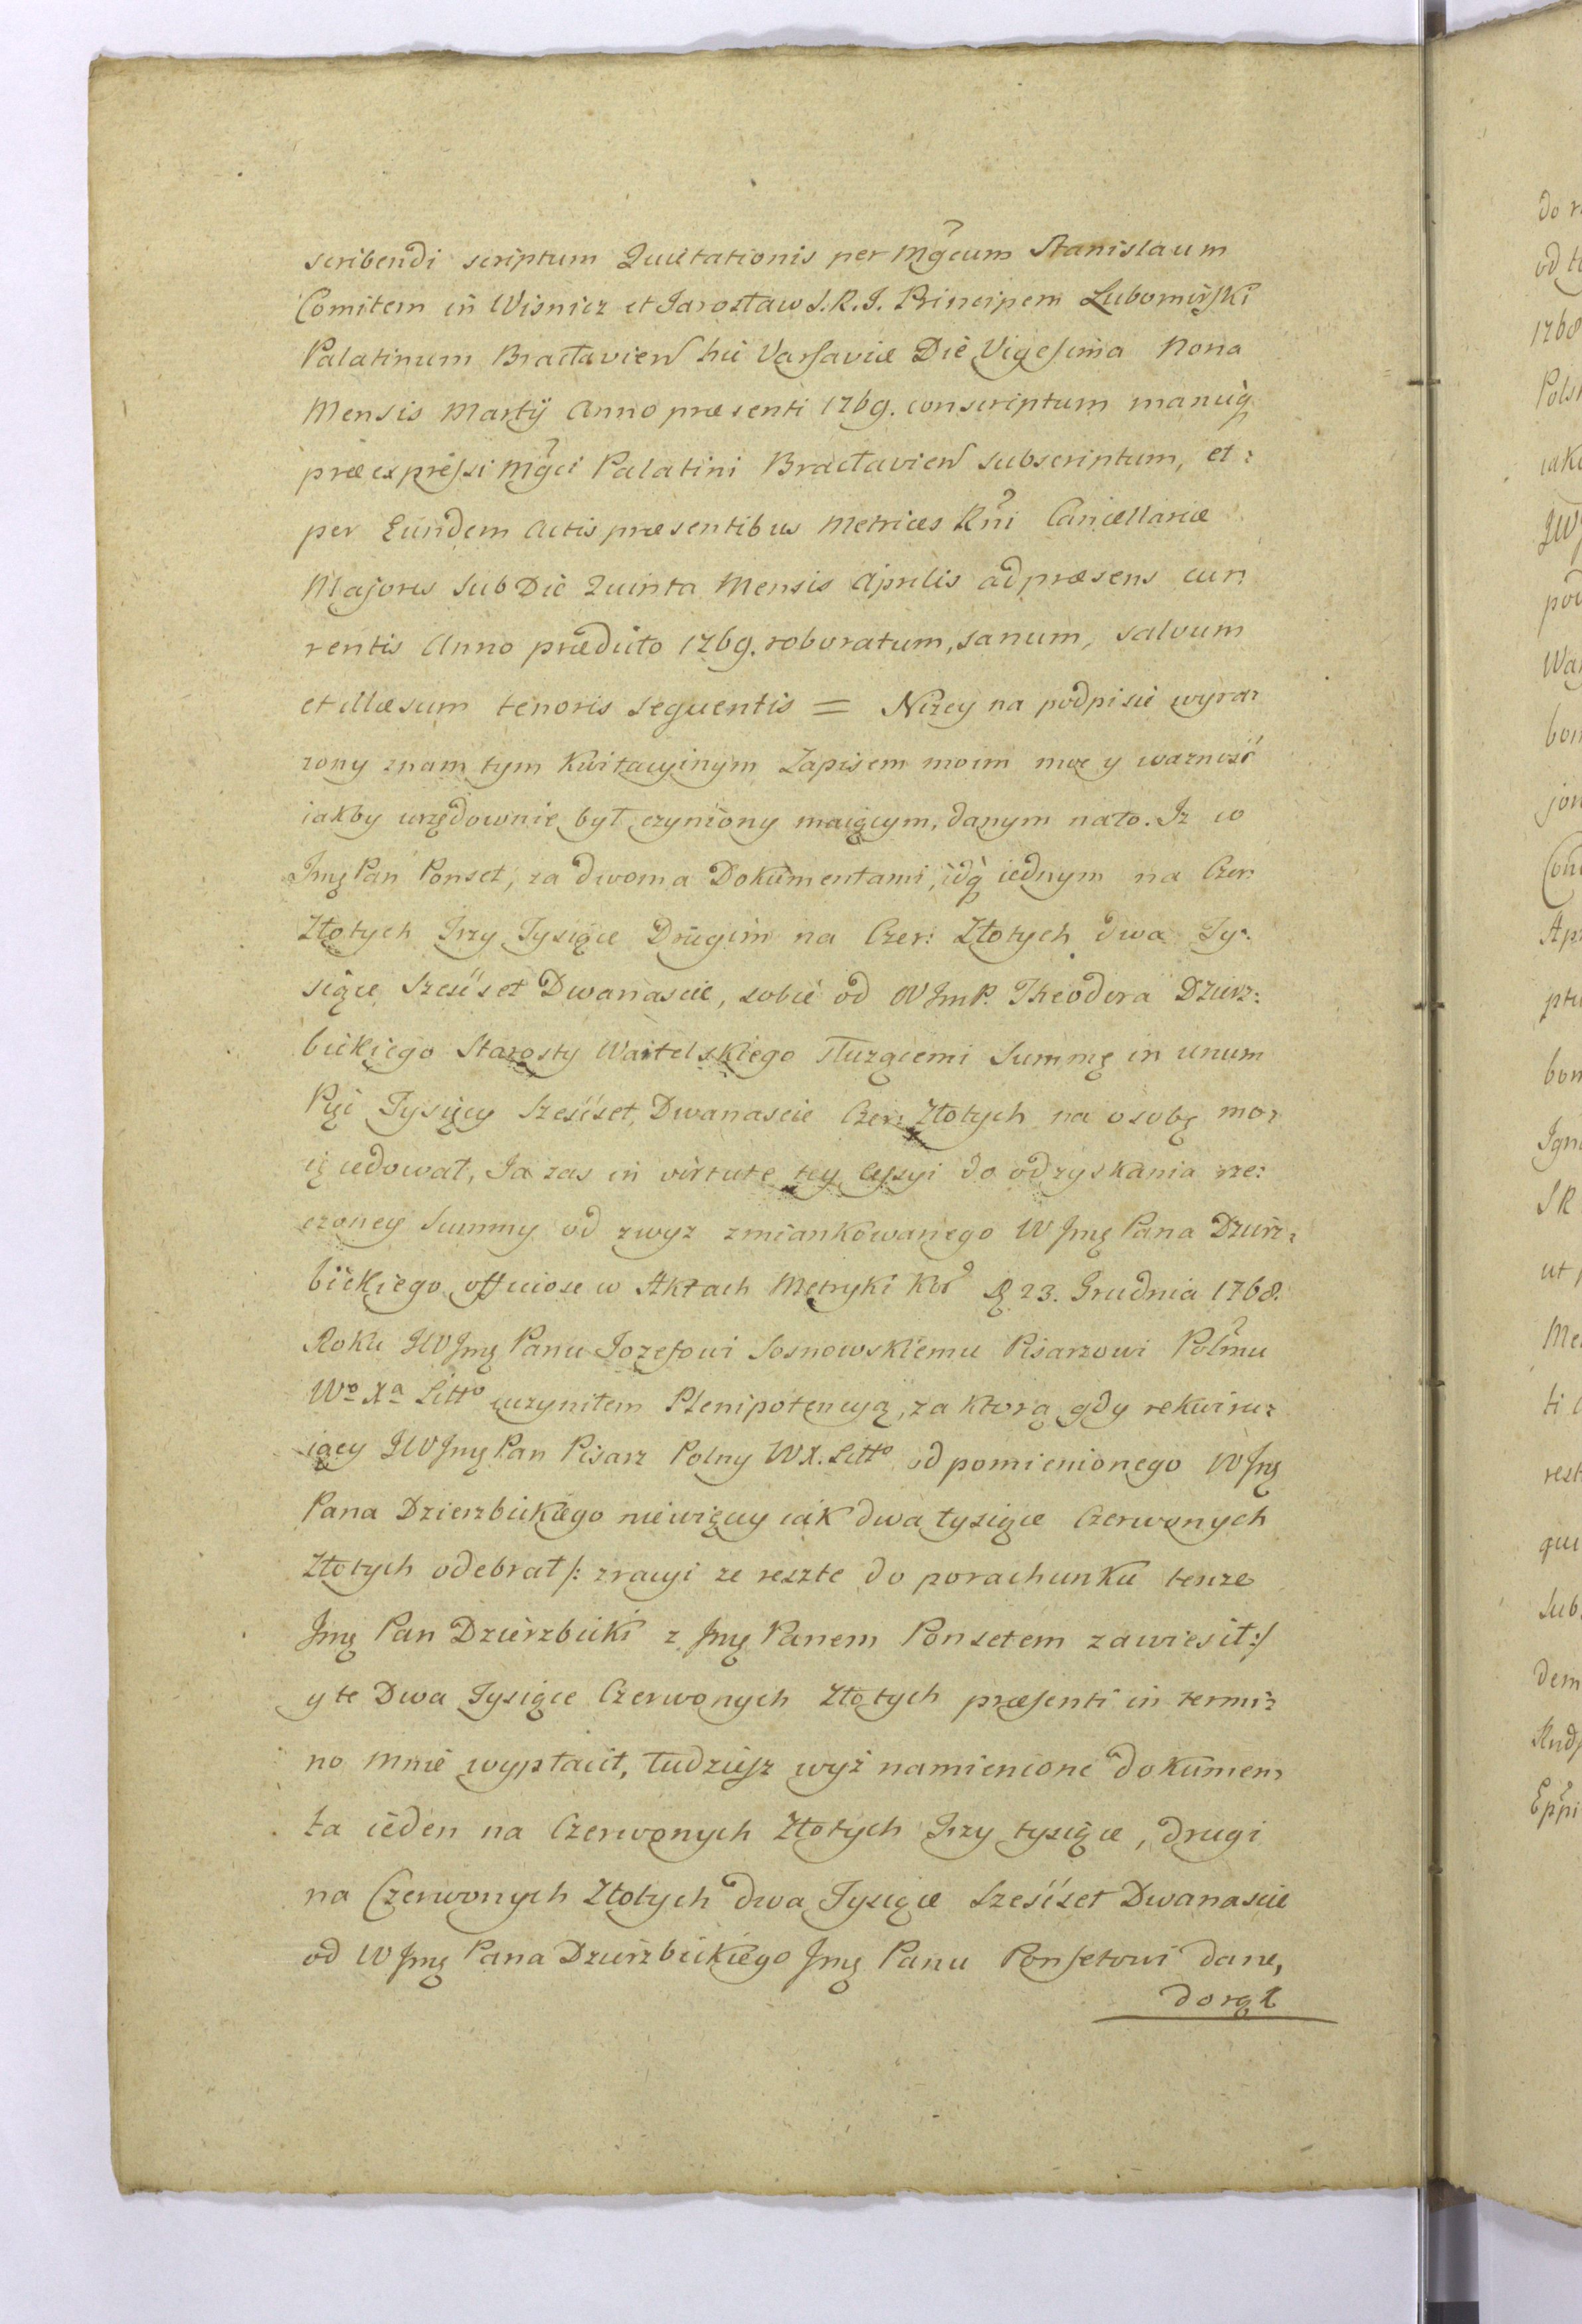 scribendi scriptum Quietationis per Mgcum Stanislaum
Comitem in Wisnicz et Jarosław S. R. I. Principem Lubomirski
Palatinum Bracłavien hic Varsaviæ Die Vigesima Nona
Mensis Martÿ Anno præsenti 1769. conscriptum manuq
præexpressi Mgci Palatini Bracłavien subscriptum, et:
per Eundem Actis præsentibus Metrices Rni Cancellariæ
Majoris Sub Die Quinta Mensis Aprilis ad præsens cur:
rentis Anno prædicto 1769. roboratum, sanum, salvum
et illæsum tenoris sequentis = Nizey na podpisie wyra:
zony znam tym Kwitacyinym Zapisem moim moc y waznosć
iakby urzędownie był czyniony maiącym, danym na to. Iz co
Jmę Pan Ponset, za dwoma Dokumentami, idq iednym na Czer:
Złotych Trzy Tysiące Drugim na Czer: Złotych dwa Ty:
siące Szesćset Dwanascie, sobie od WJmP. Theodora Dzierz:
bickiego Starosty Wartelskiego słuzącemi Summę in unum
Pięć Tysięcy Szesćset Dwanascie Czer: Złotych na osobę mo:
ię cedował, Ja zas in virtute tey cessyi do odzyskania rze:
czoney Summy od zwyz zmiankowanego WJmę Pana Dzierz:
bickiego officiose w Aktach Metryki Kor D 23. Grudnia 1768.
Roku JWJmę Panu Jozefowi Sosnowskiemu Pisarzowi Polmu
Wo Xa Litto uczyniłem Plenipotencyą, za ktorą gdy rekwiru:
iący JWJmę Pan Pisarz Polny WX. Litto od pomienionego WJmę
Pana Dzierzbickiego niewięcy iak dwa tysiące Czerwonych
Złotych odebrał /: zracyi ze reszte do porachunku tenze
Jmę Pan Dzierzbicki z Jmę Panem Ponsetem zawiesił :/
y te Dwa Tysiące Czerwonych Złotych præsenti in termi:
no mnie wypłacił, tudziesz wyż namienione dokumen:
ta ieden na Czerwonych Złotych Trzy tysiące, drugi
na Czerwonych Złotych dwa Tysiące Szesćset Dwanascie
od WJmę Pana Dzierzbickiego Jmę Panu Ponsetowi dane,
do rąk
do
od
1768
Pols
iako
JW
pod
Wa
bon
jon
Con
Ap
ptu
bon
Ign
SR
ut
Me
ti
rest
qui
Sub
dem